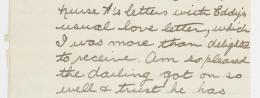 nurse A's letters with Eddy's
usual love letter, which
I was more than delighted
to receive. Am so pleased
the darling got on so
well & trust he has